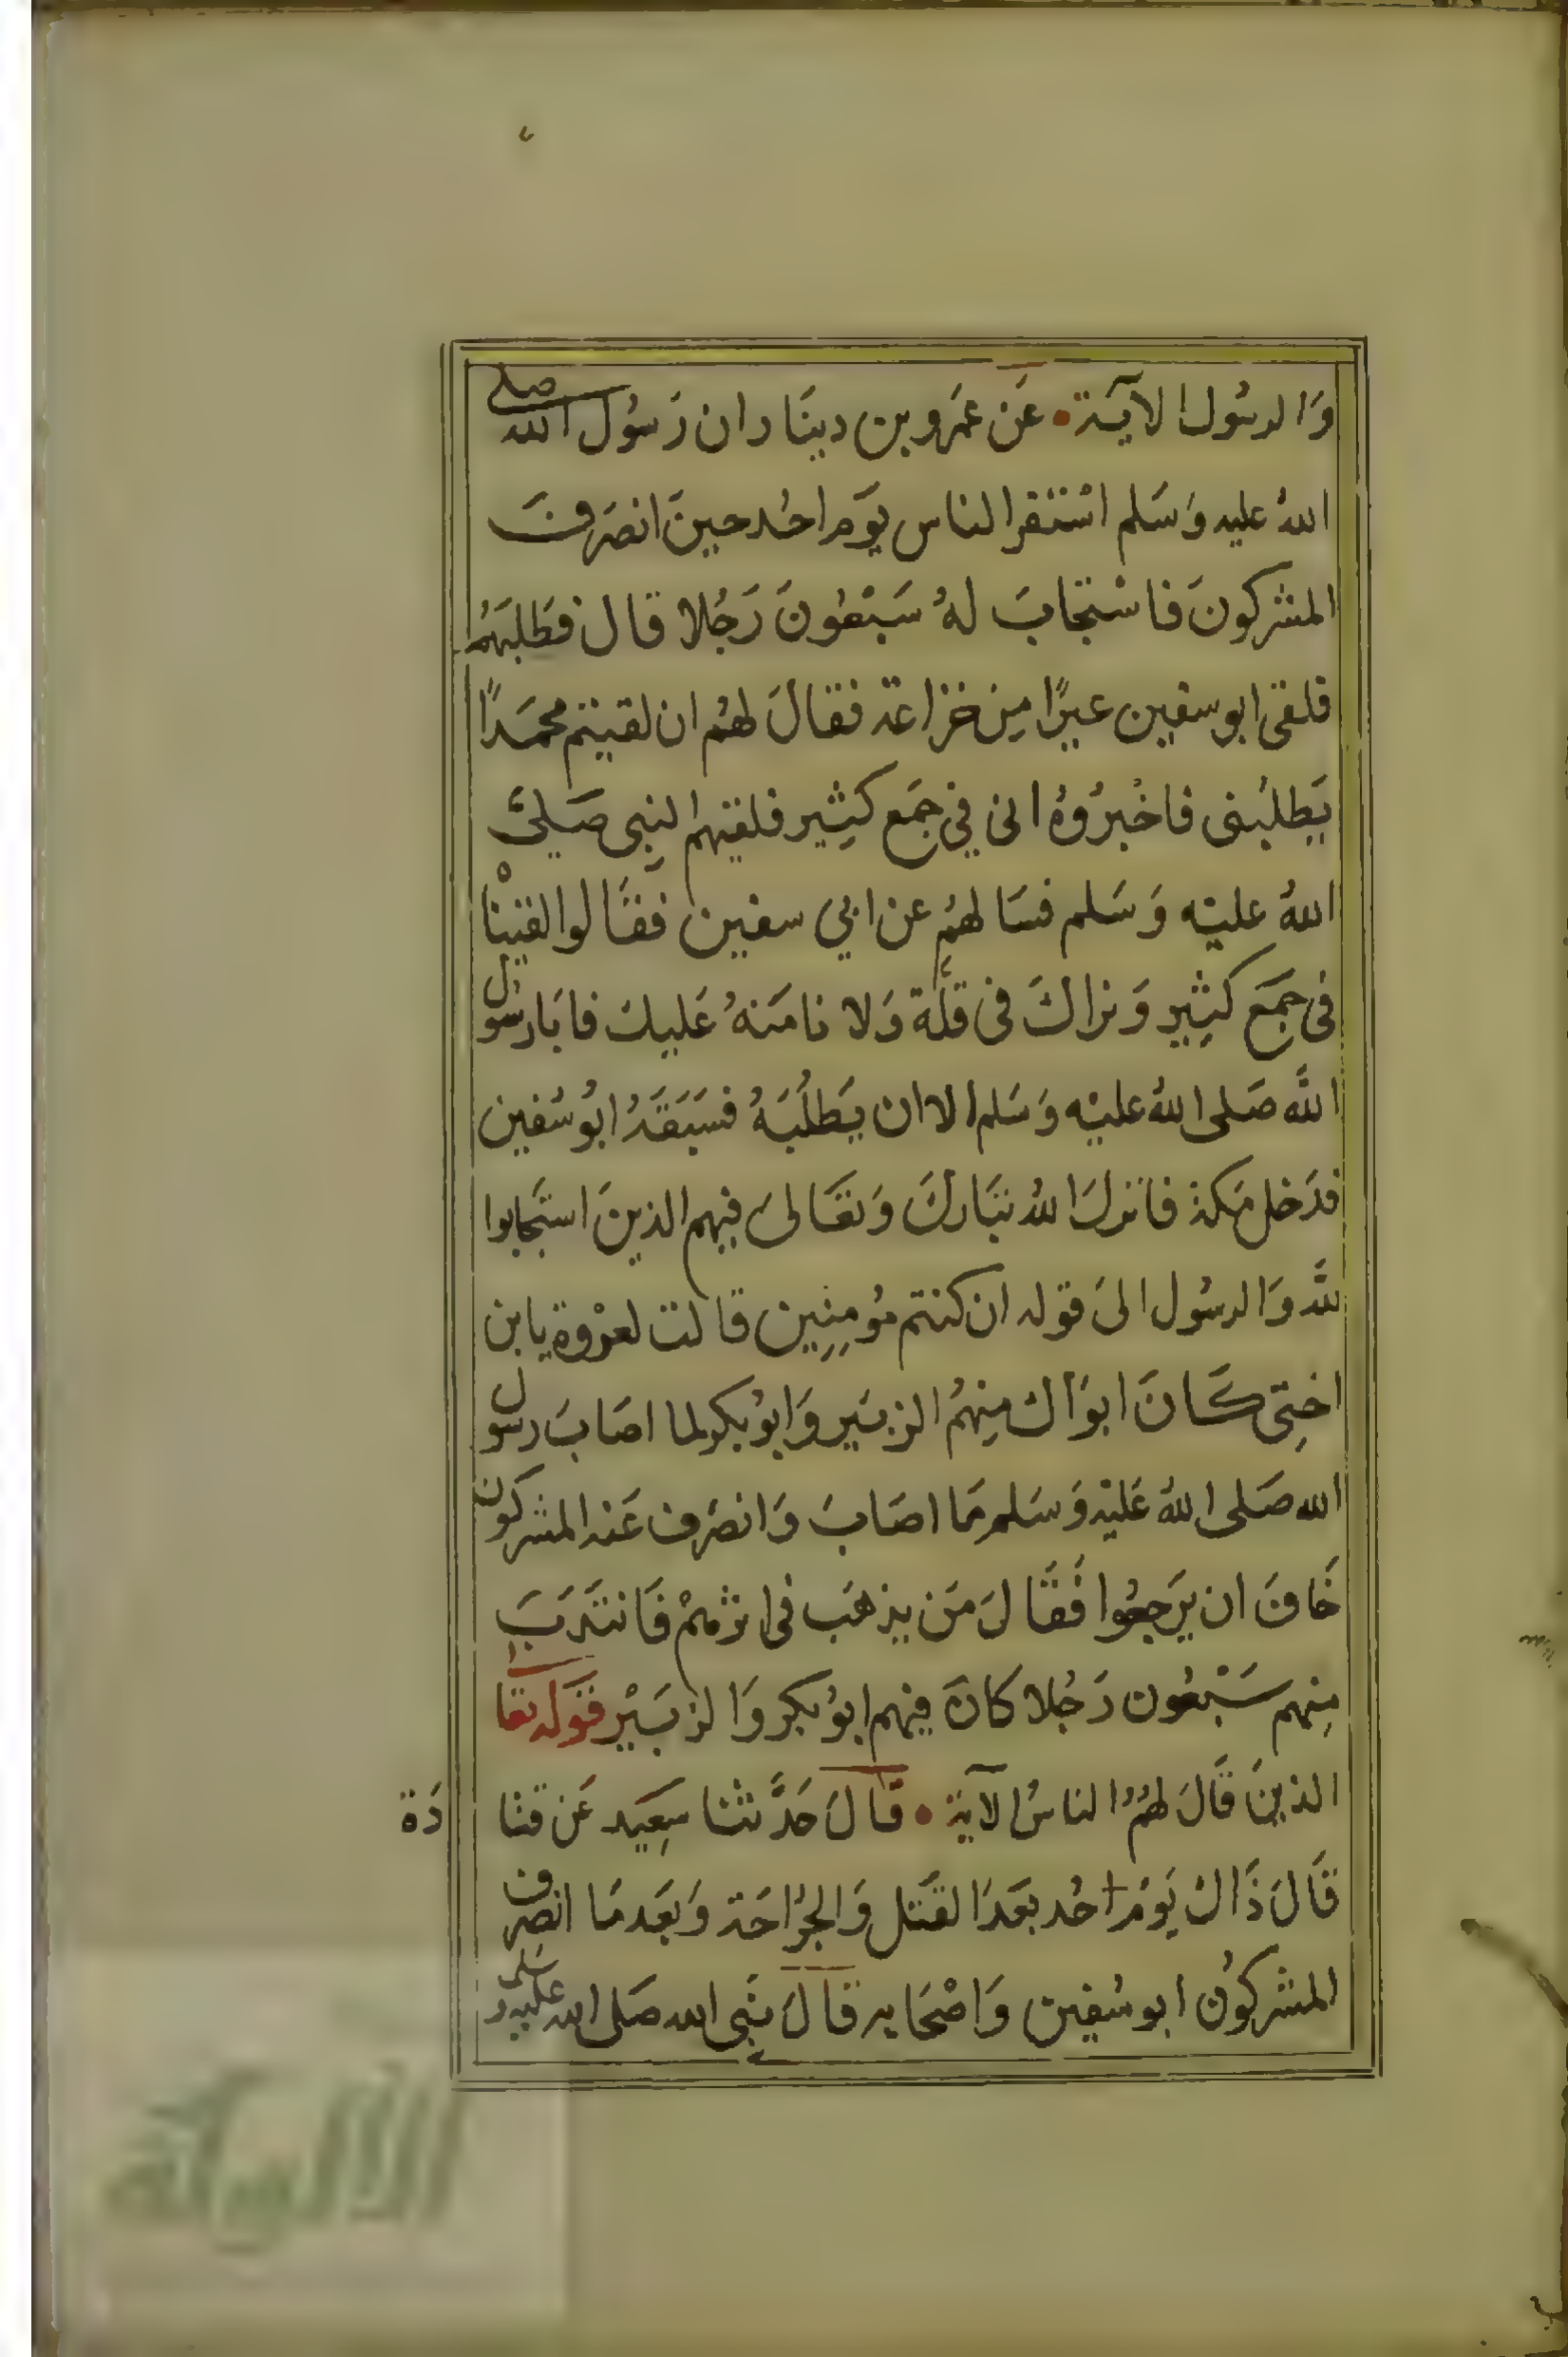 وَالرسُول الآية • عَن عَمرو بن دينَار ان رَسُول الله صلى
اللهُ عليه وَسَلم استنفر الناس يَوم احُد حينَ انصَرفَ
المشركونَ فاسْتجَابَ لهُ سَبْعُونَ رَجُلا قال فطَلبَهُم
فلقى ابو سفين عيرًا مِن خزاعة فقالَ لهُم ان لقيتم محمَدًا
يَطلبُنى فاخْبرُوهُ انى في جمَع كثِير فلقيهم النبِى صَلىَّ
اللهُ عليْه وَسَلم فسَالهُم عن ابي سفين فقَالوا لقينْاه
فى جمَع كثِير وَنراكَ فى قلَّة وَلا نامَنهُ عَليك فابَا رسُول
الله صَلى اللهُ عليْه وَسَلم الا ان يَطلُبَهُ فسَبَقَهُ ابُو سُفين
فدَخل مَكة فانزلَ اللهُ تبَاركَ وَتعَالىَ فيهم الذينَ استَجابوا
للهِ وَالرسُول الىَ قوله ان كنتم مُومِنِين قالت لعُرْوة يا بن
اختِى كَانَ ابوَاك مِنهمُ الزبَير وَابُو بكر لما اصَابَ رسُول
الله صَلى اللهُ عَليْه وَسَلم مَا اصَابَ وَانصَرف عَنه المشركون
خَافَ ان يَرجعُوا فَقَالَ مَن يذهَب فى اثرهمْ فَانتَدَبَ
مِنهم سَبْعُون رَجُلا كانَ فيهم ابوُ بكر وَالزبَيْر قوَله تعَا
الذينَ قَالَ لهُمُ الناسُ الآية • قالَ حَدَّثنا سِعَيد عَن قتا دَة
قَالَ ذَاكَ يَوُمَ احُد بعَدَ القَتل وَالجرَاحَة وَبعَد مَا انصَرف
المشركوُن ابو سُفين وَاصْحَابه قالَ نبَى الله صَلى الله عليه وسَلم